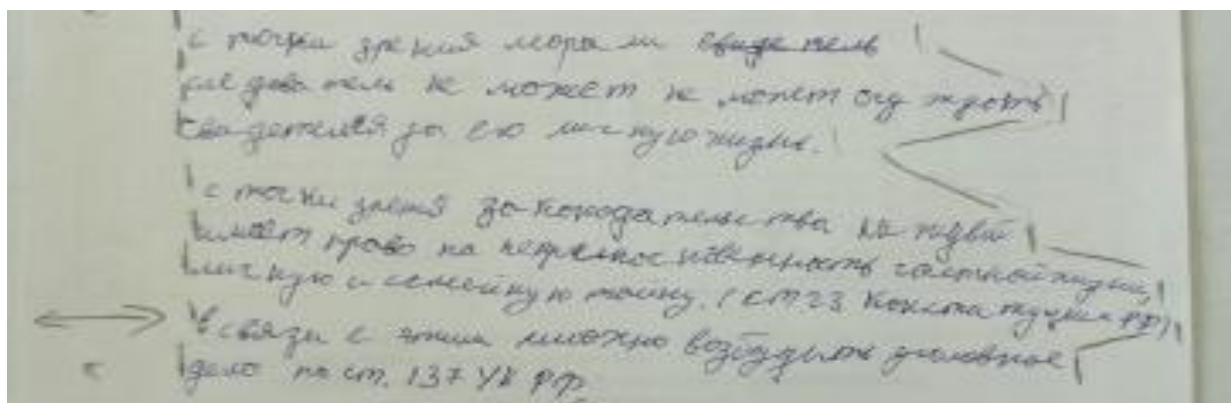 с точки зрения морали свидетель
следователь не может не может осуждать
свидетеля за его личную жизнь.
с точки зрения законодательства каждый
имеет право на неприкосновенность частной жизни,
личную и семейную тайну. (ст 23 Конституции РФ)
в связи с этим можно возбудить уголовное
дело по ст. 137 УК РФ